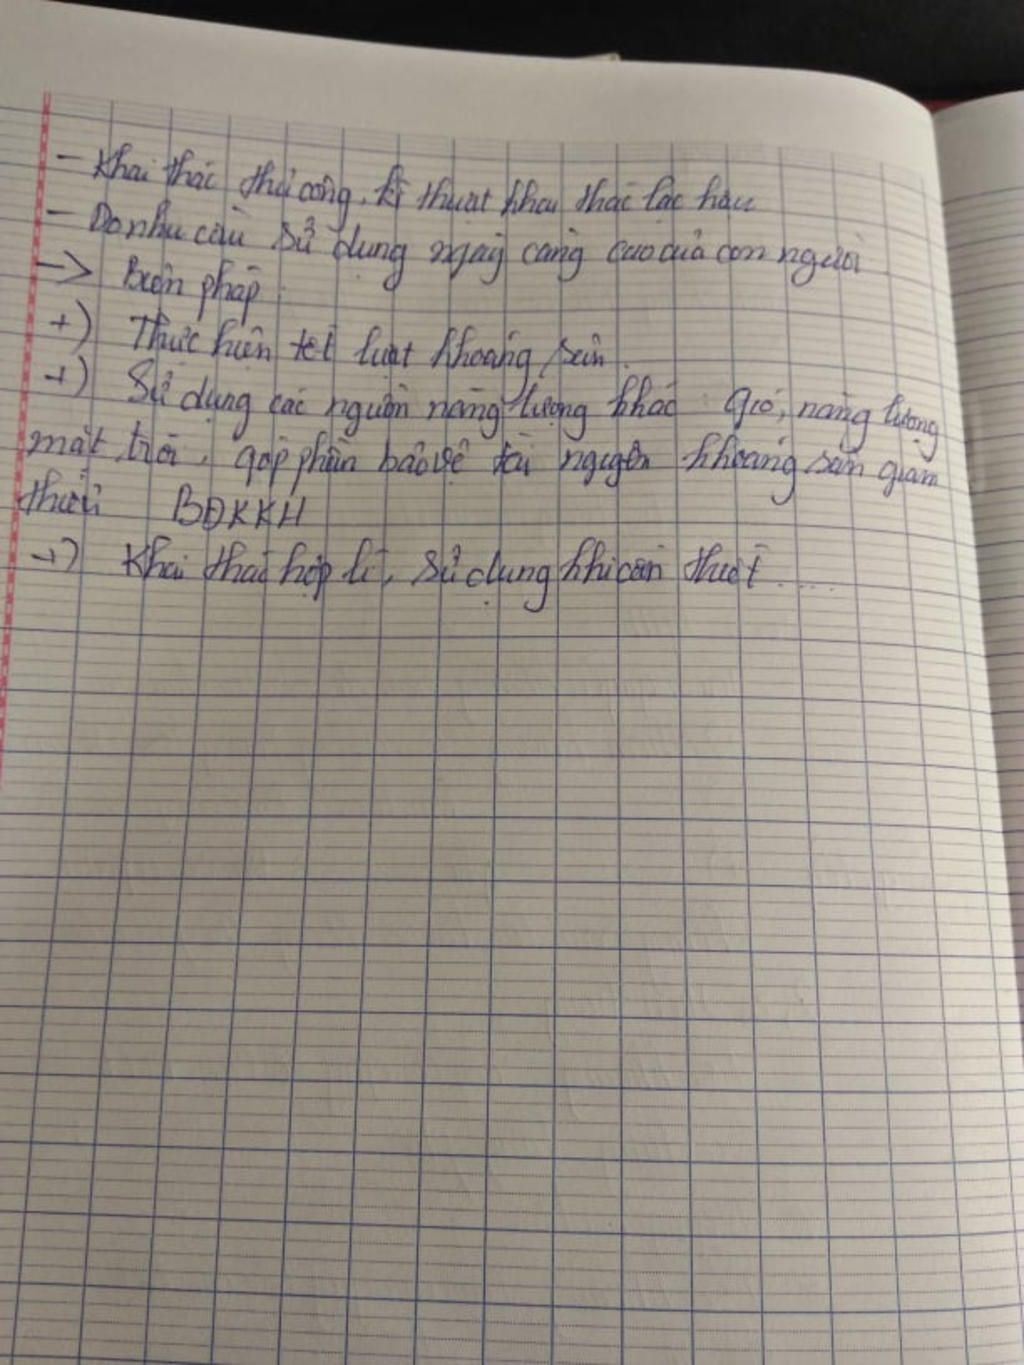 - Khai thác thủ công, kĩ thuật khai thác lạc hậu
- Do nhu cầu sử dụng ngày càng cao của con người
-> Biện pháp
+) Thực hiện tốt luật khoáng sản.
+) Sử dụng các nguồn năng lượng khác gió, năng lượng
mặt trời, góp phần bảo vệ tài nguyên khoáng sản giảm
thiểu BĐKKH
+) Khai thác hợp lí, sử dụng khi cần thiết ....